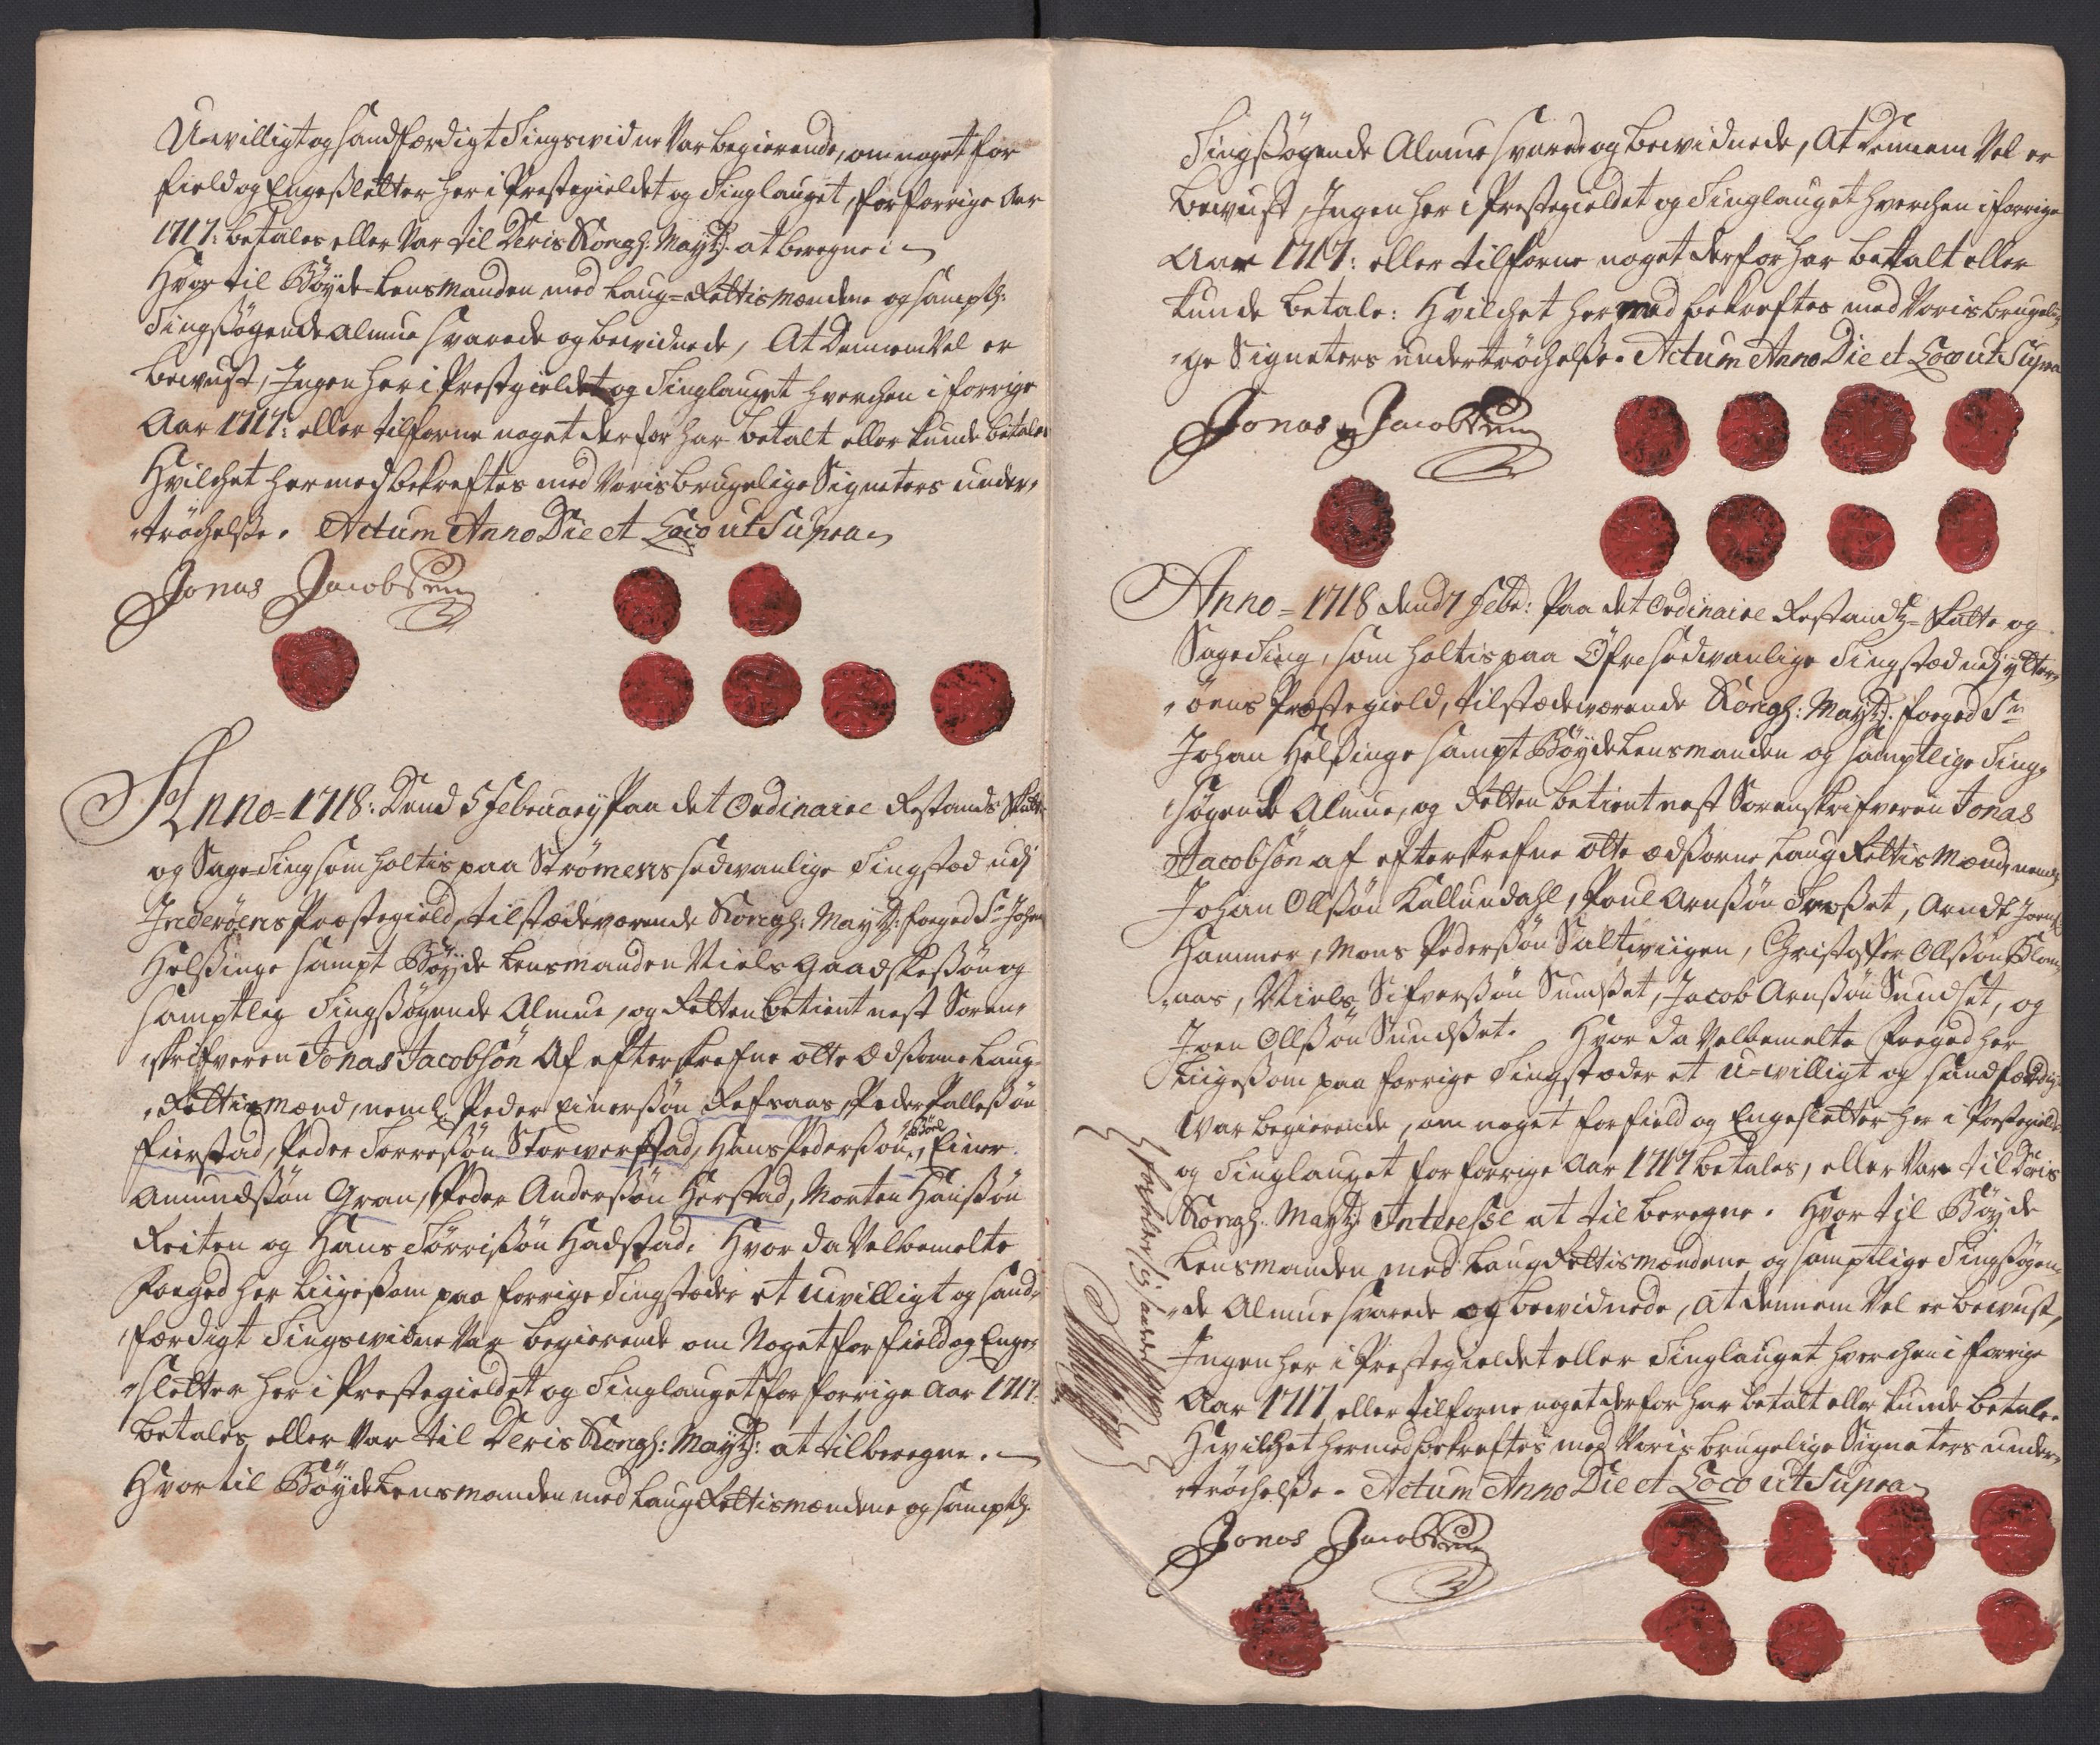 U-willigt og Sandfærdigt Tingswidne Var begierende, om noget for
field og Engesletter her i Prestegieldet og Tinglauget, for forrige Aar
1717: betales eller Var til Deris Kongl: Maytz. at beregne:
Hvor til Böyde-Lensmanden med Laug-Rettis Mændene og samptl:
Tingsögende almue svarede og bewidnede, At Dennem Vel er
bewust, Ingen her i Prestgieldet og Tinglauget hverchen i forrige
Aar 1717: eller tilforne noget derfor har betalt eller kunde betales
Hvilchet hermed bekreftes med Voris brugelige Signeters under-
tröchelse. Actum Anno Die et Loco ut Supra
Jonas Jacobsen
Anno=1718: Dend 5 February Paa det Ordinaire Restands Skatte
og Sage-Ting som holtis paa Strömens sedwanlige Tingstod udj
Inderöens Præstegield, tilstædeværende Kongl: Maytz: foged Sr Johan
Helsinge sampt Böyde Lensmanden Niels Gaadskessön og
samptleg Tingsögende Almue, og Retten betient nest Soren-
skrifveren Jonas Jacobsön Af efterskrefne otte Ædsorne Laug-
Rettismænd, neml. Peder Einerssön Refsaas, Peder Pallessön
Fierstad, Peder Torressön Storwerstad, Hans Pederssön Böel, Einer
Amundssön Gran, Peder Anderssön Herstad, Morten Hanssön
Reiten og Hans Törrissön Hadstad. Hvor da Velbemelte
Foged her liigesom paa forrige Tingstæder et uwilligt og sand-
færdigt Tingswidne Var begierende om Noget for field og Enge-
sletter her i Prestegieldet og Tinglauget for forrige Aar 1717.
betales eller Var til Deris Kongl: Maytz: at tilberegne.
Hvor til Böyde Lensmanden med Laug Rettismændene og samptl:
Tingsögende Almue svarede og bewidnede, At Dennem Vel er
bewust, Ingen her i Prestegieldet og Tinglauget hverchen i forrige
Aar 1717: eller tilforne noget derfor har betalt eller
kunde betale: Hvilchet hermed bekreftes med Voris brugeli-
ge Signeters undertröchelse. Actum Anno Die et Loco ut Supra
Jonas Jacobsen
Anno=1718 dend 7 Febr: Paa det Ordinaire Restandtz-Skatte og
Sage Ting, som holtis paa Öfre sedwanlige Tingstæd udj ytter-
öens Præstegield, tilstædewærende Kongl: Maytz. foged Sr
Johan Helsinge sampt Böyde Lensmanden og samptlige Ting-
sögende Almue, og Retten betient nest Sorenskrifveren Jonas
Jacobsön af efterskrefne otte ædsorne Laug Rettis Mænd, neml.
Johan Olssön Kallundahl, Poul Arnssön Trosset, Arndt Joens:
Hammer, Mons Pederssön Saltwiigen, Christoffer Olssön Blom-
naas, Niels Sifverssön Sundset, Jacob Arnssön Sundset, og
Joen Olssön Sundset. Hvor da Velbemelte Foged her
Liigesom paa forrige Tingstæder et u-willigt og sandfærdigt
War begierende, om noget for field og Engesletter her i Prestegieldet
og Tinglauget for forrige Aar 1717 betales, eller Var til Deris
Kongl. Maytz. Interesse at tilberegne. Hvor til Böyde
Lensmanden med Laug Rettismændene og samptlige Tingsögen-
de Almue svarede og bewidnede, At dennem Vel er bewust,
Ingen her i Prestegieldet eller Tinglauget hverchen i forrige
Aar 1717 eller tilforne noget derfor har betalt eller kunde betale.
Hwilchet hermed bekreftes med Voris brugelige Signeters under-
tröchelse. Actum Anno Die et Loco ut Supra
Jonas Jacobsen